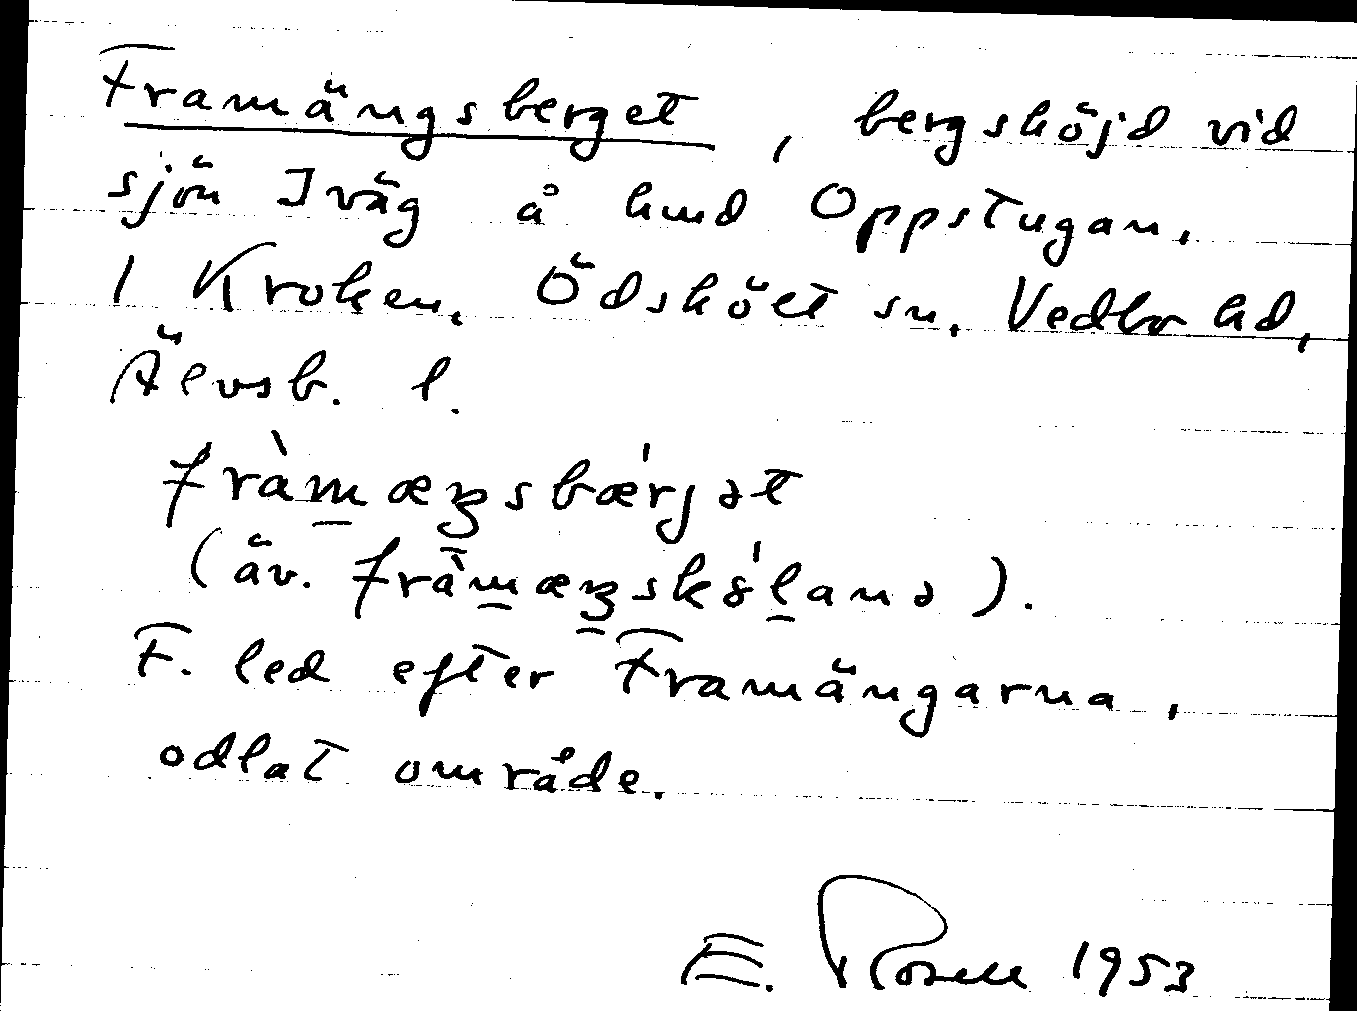 Framängsberget, bergshöjd vid
sjön Iväg å hmd Oppstugan,
1 Kroken, Ödskölt sn, Vedbo hd,
Älvsb. l.
fràmæŋsbǽrjət
(äv.
F. led efter Framängarna,
odlat område.
E. Rosell 1953